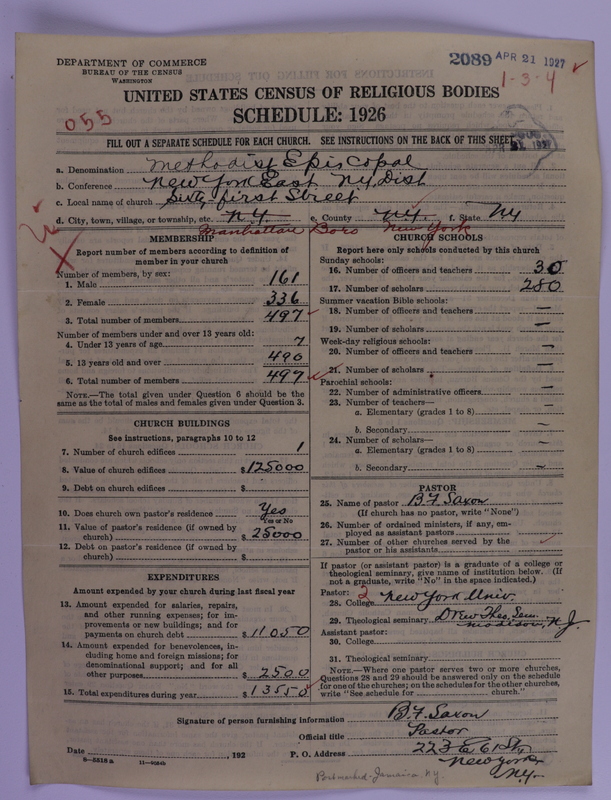 DEPARTMENT OF COMMERCE
BUREAU OF THE CENSUS
WASHINGTON
2089 APR 21 1927
1-3-4
UNITED STATES CENSUS OF RELIGIOUS BODIES
SCHEDULE: 1926
055
FILL OUT A SEPARATE SCHEDULE FOR EACH CHURCH. SEE INSTRUCTIONS ON THE BACK OF THIS SHEET
a. Denomination Methodist Episcopal
b. Conference New York East N.Y. Dist
c. Local name of church Sixty first Street
d. City, town, village, or township, etc. N.Y. e. County N.Y. f. State N.Y
Manhattan Boro New York
MEMBERSHIP
Report number of members according to definition of
member in your church
Number of members, by sex:
1. Male 161
2. Female 336
3. Total number of members 497
Number of members under and over 13 years old:
4. Under 13 years of age 7
5. 13 years old and over 490
6. Total number of members 497
NOTE.—The total given under Question 6 should be
same as the total of males and females given under Question 3.
CHURCH BUILDINGS
See instructions, paragraphs 10 to 12
7. Number of church edifices 1
8. Value of church edifices $125000
9. Debt on church edifices $
10. Does church own pastor's residence? Yes
Yes or No
11. Value of pastor's residence (if owned by
church) $25000
12. Debt on pastor's residence (if owned by
church) $
EXPENDITURES
Amount expended by your church during last fiscal year
13. Amount expended for salaries, repairs,
and other running expenses; for im-
provements or new buildings; and for
payments on church debt $11050
14. Amount expended for benevolences, in-
cluding home and foreign missions; for
denominational support; and for all
other purposes $2500
15. Total expenditures during year $13550
CHURCH SCHOOLS
Report here only schools conducted by this church
Sunday schools:
16. Number of officers and teachers 30
17. Number of scholars 280
Summer vacation Bible schools:
18. Number of officers and teachers —
19. Number of scholars —
Week-day religious schools:
20. Number of officers and teachers —
21. Number of scholars —
Parochial schools:
22. Number of administrative officers —
23. Number of teachers—
a. Elementary (grades 1 to 8) —
b. Secondary —
24. Number of scholars—
a. Elementary (grades 1 to 8) —
b. Secondary —
PASTOR
25. Name of pastor B. F. Saxon
(If church has no pastor, write "None")
26. Number of ordained ministers, if any, em-
ployed as assistant pastors
27. Number of other churches served by the
pastor or his assistants
If pastor (or assistant pastor) is a graduate of a college or
theological seminary, give name of institution below. (If
not a graduate, write "No" in the space indicated.)
Pastor: 2
28. College New York Univ.
29. Theological seminary Drew Theo. Sem.
Madison, N.J.
Assistant pastor:
30. College
31. Theological seminary
NOTE.—Where one pastor serves two or more churches,
Questions 28 and 29 should be answered only on the schedule
for one of the churches; on the schedules for the other churches,
write "See schedule for church."
Signature of person furnishing information B. F. Saxon
Official title Pastor
Date , 192 P. O. Address 223 E 61 St,
New York
N.Y.
8-5518a 11-9054b
Postmarked-Jamaica, N.Y.